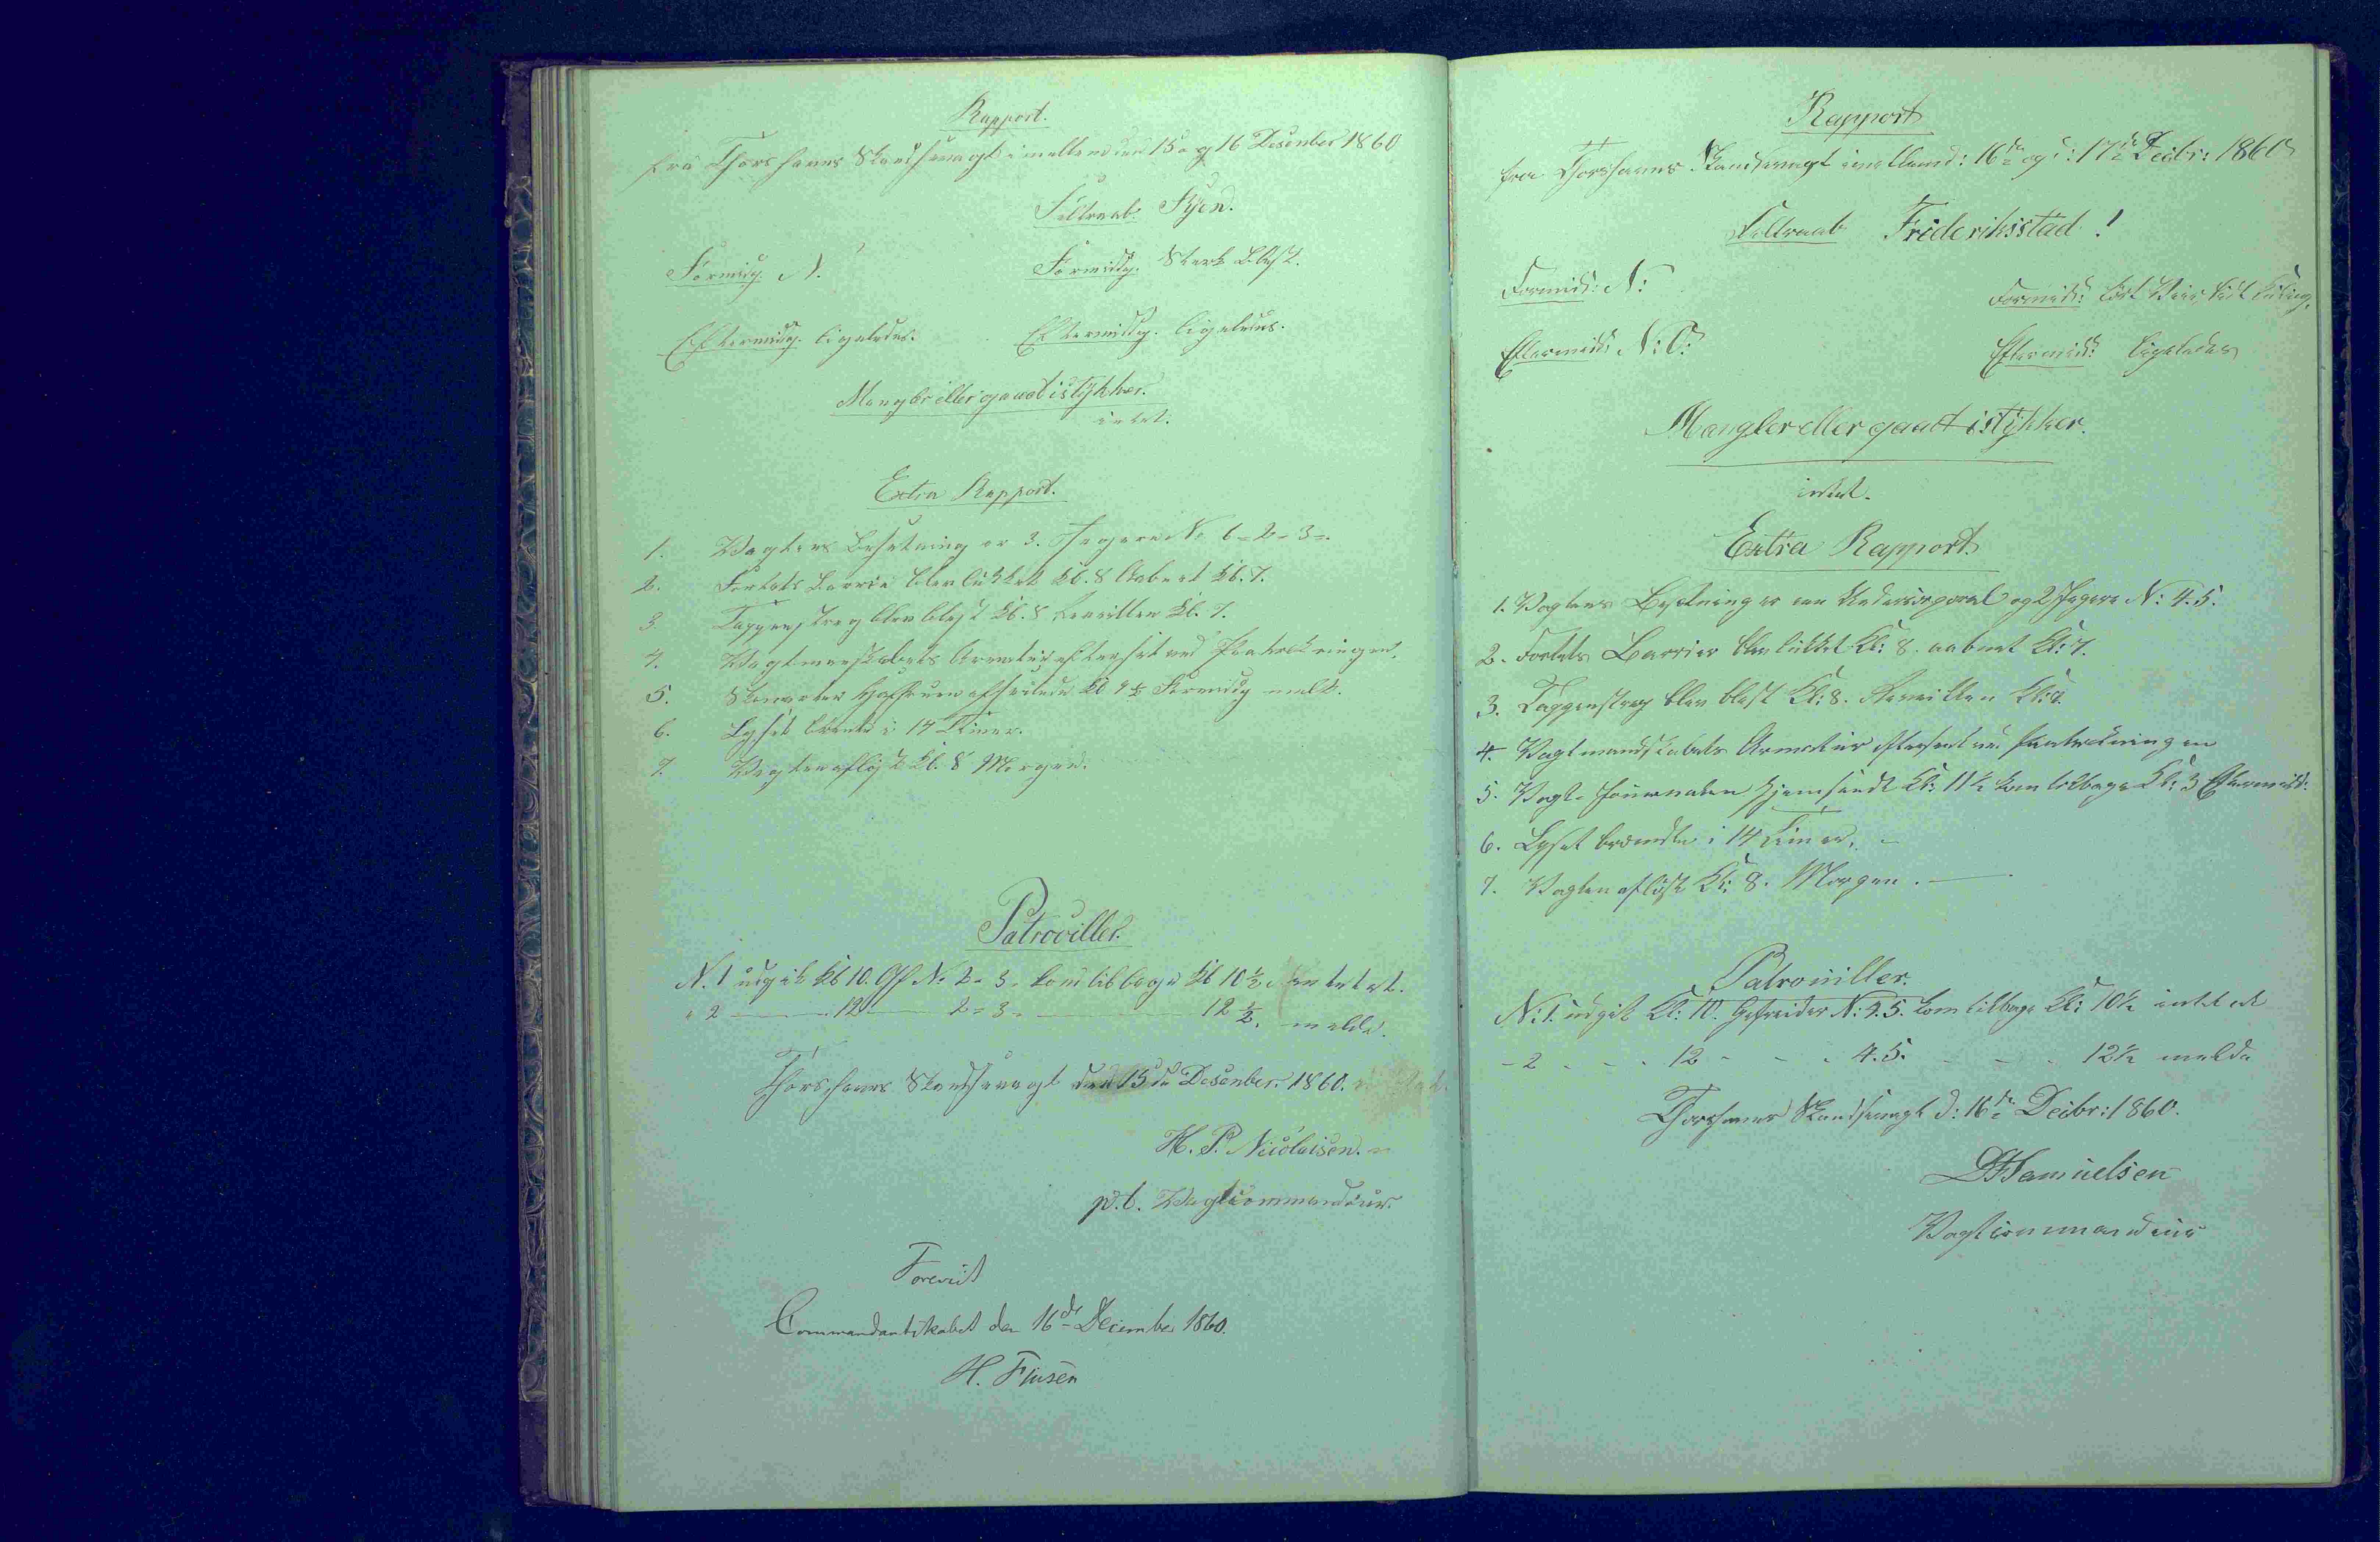 Rapport.
fra Thorshavns Skandsevagt imellem den 15 og 16 Desember 1860
Feltraab: Fyen.
Formidg. N. Formiddg. Sterk Blæst.
Eftermidg. ligeledes. Eftermiddg. ligeledes.
Mangler eller gaaet istÿkker.
intet.
Extra Rapport.
1. Vagtens Besetning er 3. Jegere No 6=2=3=.
2. Fortets Barrie blev lukket Kl. 8 Aabnet Kl. 7.
3. Tappenstreg blev blest Kl. 8 Revellien Kl. 7.
4. Vagtmanskabets Armatur efterset ved Paatredningen.
5. Kl 9½ Formidg
6. Lyset brente i 14 Timer.
7. Vagten afløst Kl. 8 Morgen.
Patroviller.
N. 1 udgik Kl 10. Gf No 2=3. kom tilbage Kl 10½ intet at
" 2 — 12 — 2=3 — 12½. melde.
Thorshavns Skandsevagt den 15de Desember 1860.
H. P. Nicolaisen.
p.t. Vagtcommandeur.
Foreviist
Commandantskabet den 16de December 1860.
H. Flusen
Rapport
fra Thorshavns Skandsevagt imellem d: 16de og d: 17de Decbr: 1860
Feltraab Frideriksstad!
Formid: N: Formid: Veir
Eftermid: N:O: Eftermid: ligeledes
Mangler eller gaaet istÿkker.
intet.
Extra Rapport
1. Vagtens Besetning er een Undercorporal og 2 Jegere N: 4.5.
2. Fortets Barrier blev lukket Kl: 8. aabnet Kl: 7.
3. Tappenstreg blev blest Kl: 8. Revellien Kl: 7.
4. Vagtmandskabets Armatur efterseet ved Paatredningen
5. Vagt-Journalen hjemsendt Kl: 11½ kom tilbage Kl: 3 Eftermid:
6. Lyset brændte i 14 Timer. —
7. Vagten afløst Kl: 8. Morgen. —
Patrouiller.
N: 1. udgik Kl: 10. Gefreider N: 4.5. kom tilbage Kl: 10½ intet at
- 2 - - - 12 - - - 4.5. - - - 12½ melde
Thorshavns Skandsevagt d: 16de Decbr: 1860.
Samuelsen
Vagtcommandeur